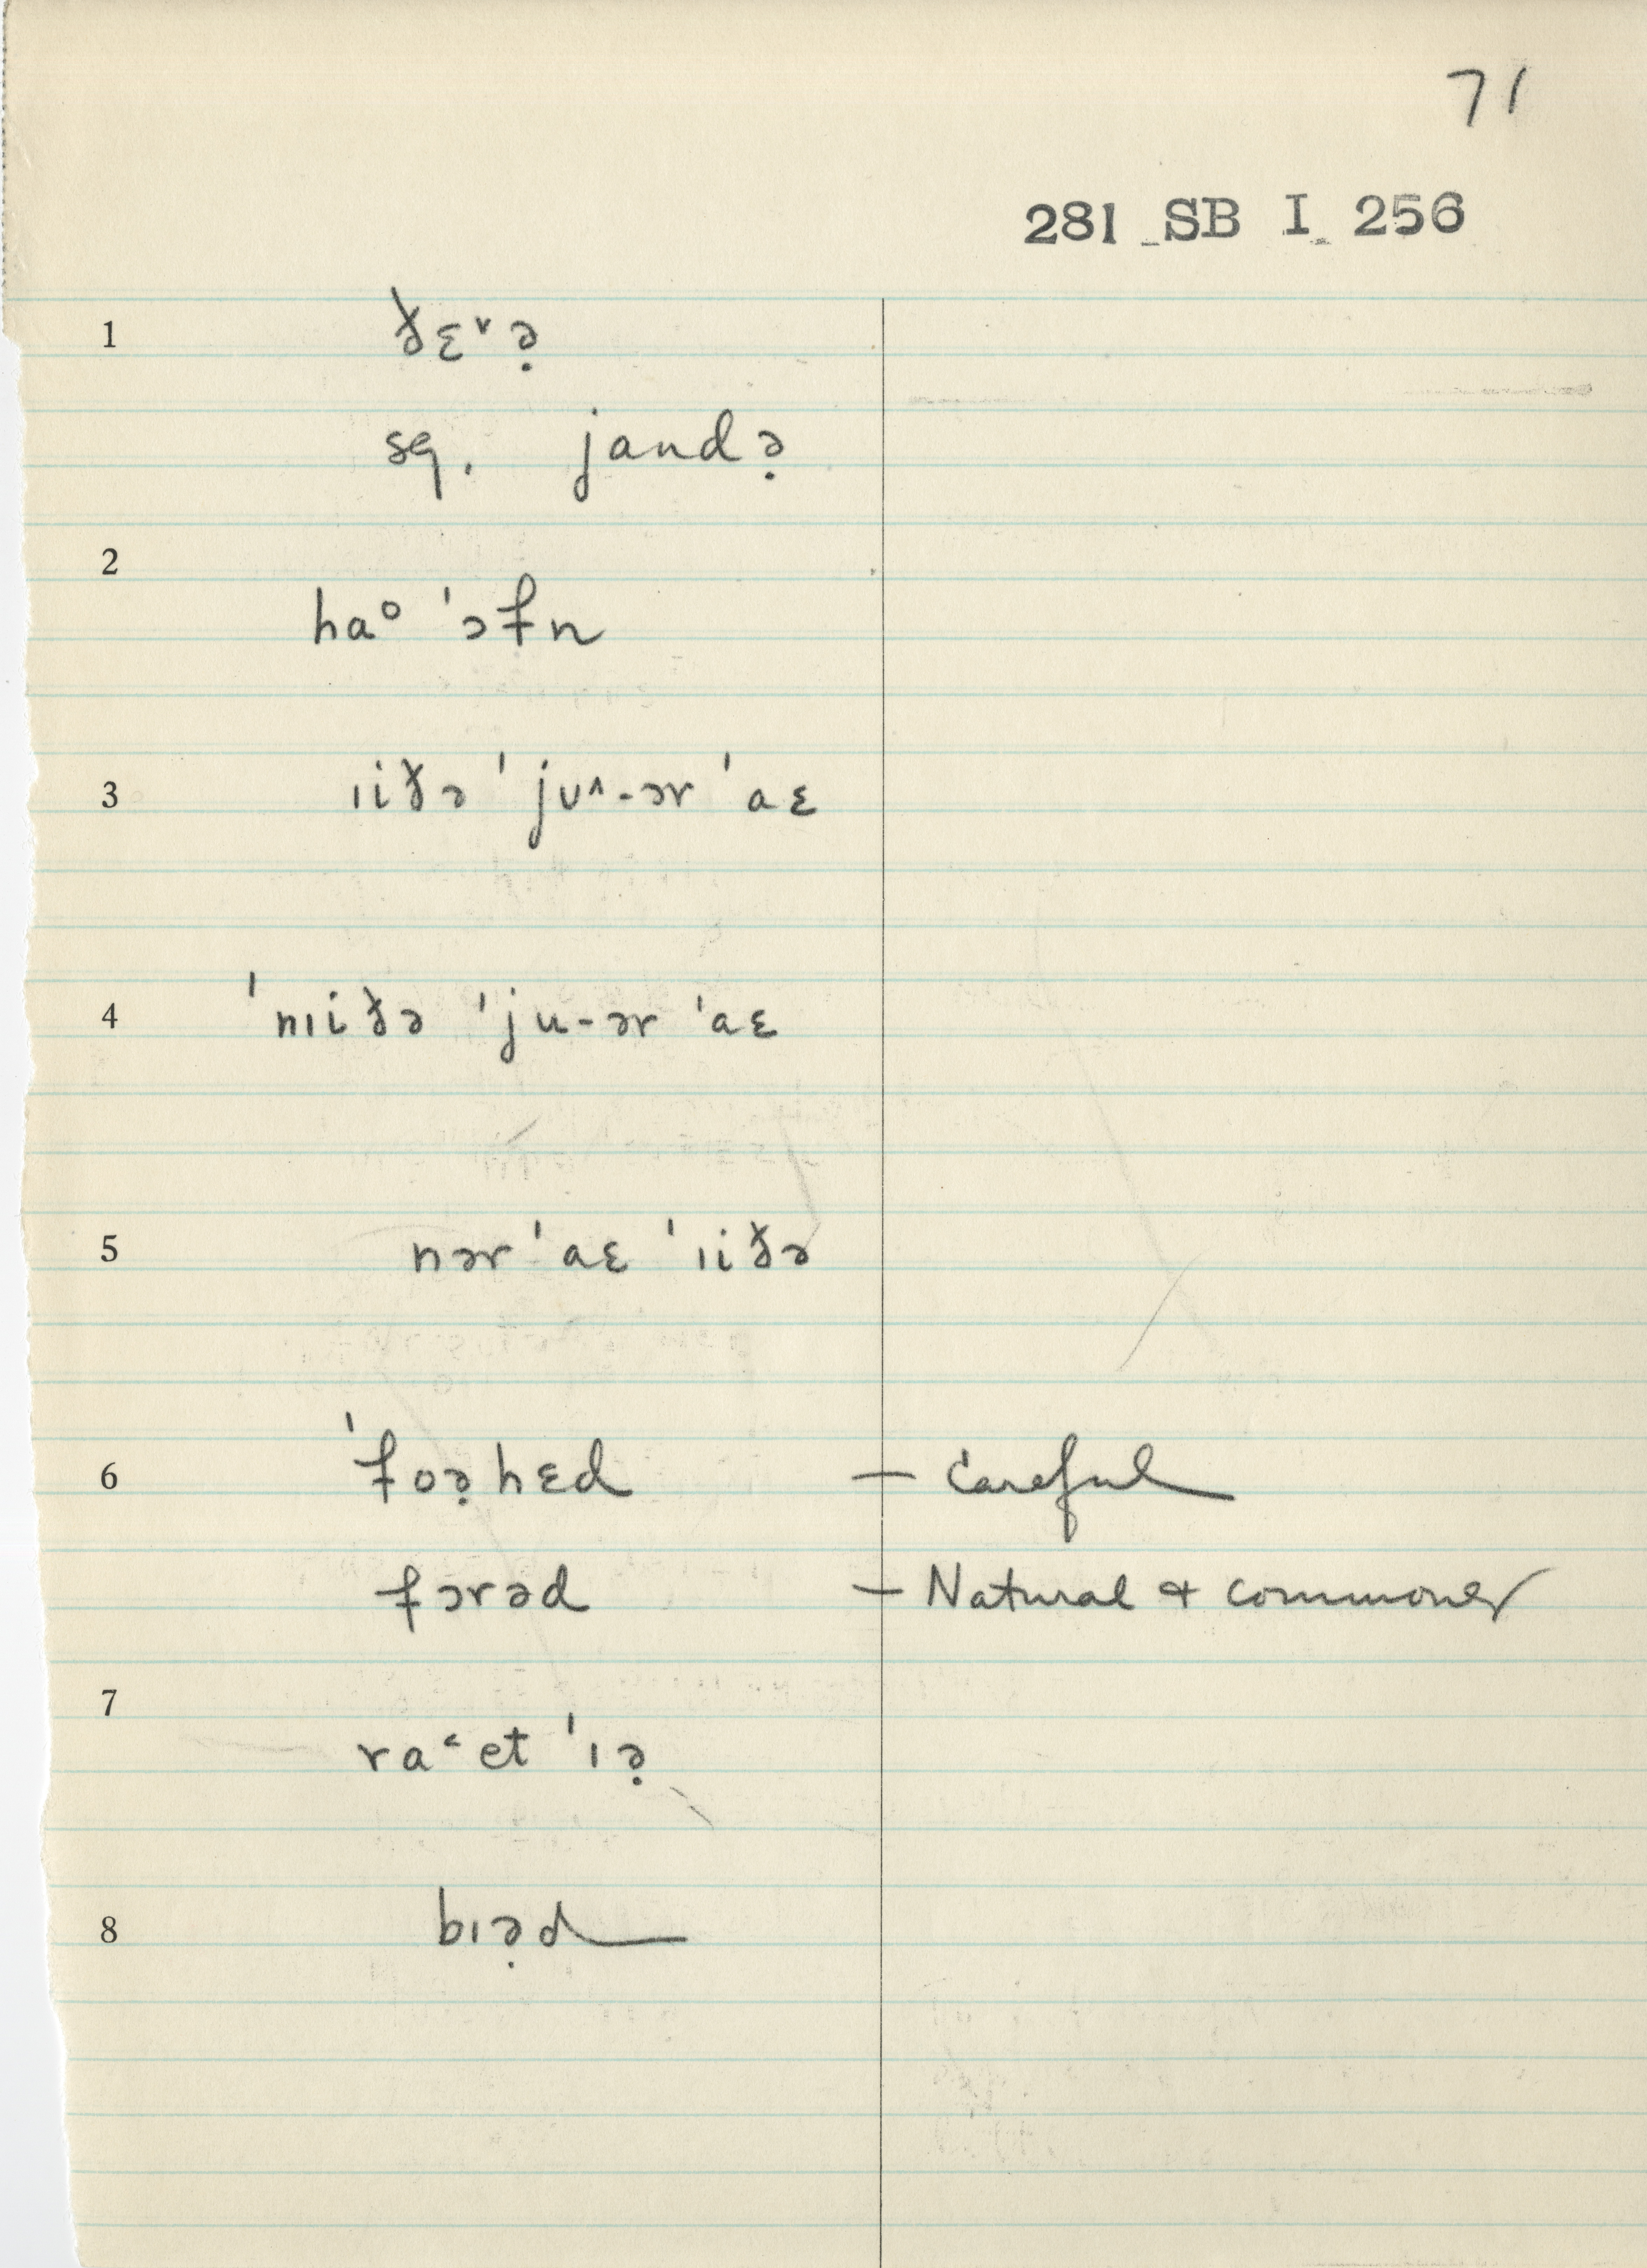 71
281 SB I 256
1 ðɛ˅ə̣
sq. jandə̣
2
ha° ˈɔfn
3 ɪiðə ˈjʊ^-ər ˈaɛ
4 ˈnɪiðə ˈju-ər ˈaɛ
5 nər ˈaɛ ˈɪiðə
6 ˈfoə̣hɛd — Careful
fərəd — Natural & commoner
7
ra˂et ˈɪə̣
8 bɪə̣d